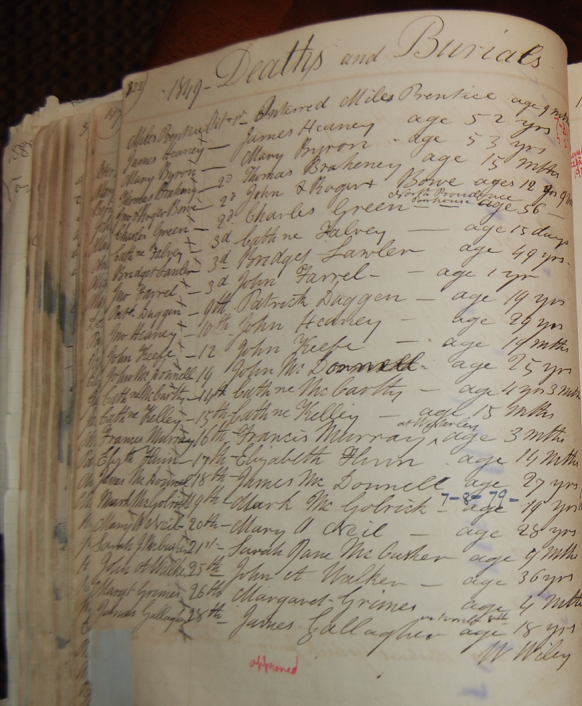 1849 - Deaths and Burials
Miles Prentice Oct 1st - Interred Miles Prentice age 9 mths
James Heaney - James Heaney age 52 yrs
Mary Byron - Mary Byron - age 53 yrs
Thomas Braheney - 2d Thomas Braheney age 15 mths
Jno & Roger Bowe - 2d John & Roger Bowe ages 12 yrs
Charles Green - 2d Charles Green North Providence age 56 -
Cathne Falvey - 3d Cathne Falvey - age 15 days
Bridget Lawler - 3d Bridget Lawler age 49 yrs
Jno Farrel - 3d John Farrel - age 1 yr
Patk Daggen - 9th Patrick Daggen - age 19 yrs
Jno Heaney - 10th John Heaney - age 29 yrs
John Keefe - 12 John Keefe - age 19 mths
John McDonnell 14 John McDonnell - age 25 yrs
Cathne McCarthy - 14th Cathne McCarthy - age 4 yrs 3 mths
Cathne Kelley - 15th Cathne Kelley - age 15 mths
Francis Murray 16th - Francis Murray, age 3 mths
Elizth Flinn - 17th - Elizabeth Flinn age 14 mths
James McDonnell 18th - James McDonnell age 27 yrs
7-8-79-
Mark McGolrick 19th - Mark McGolrick - age 19 yrs
Mary O Neil - 20th - Mary O Neil - age 28 yrs
Sarah J McCusker 21st - Sarah Jane McCusker age 9 mths
John A Walker 25th John A Walker - age 36 yrs
Margt Grimes 26th - Margaret Grimes age 4 mths
James Gallagher 28th - James Gallagher age 18 yrs
W Wiley